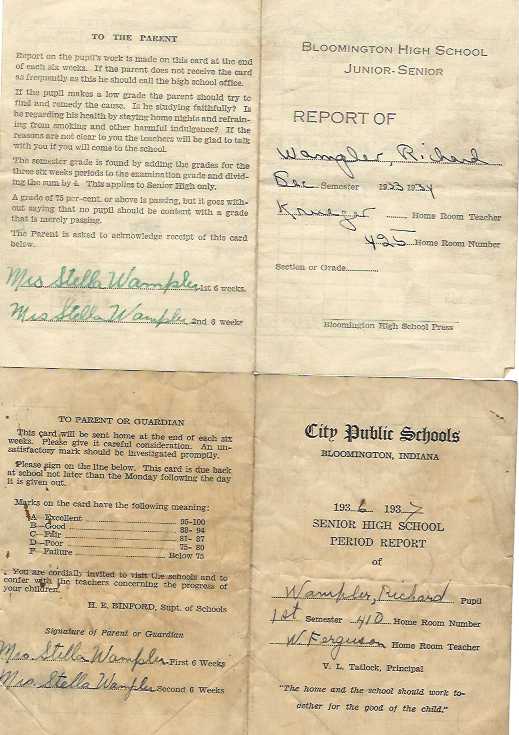 TO THE PARENT
Report on the pupil's work is made on this card at the end
of each six weeks. If the parent does not receive the card
as frequently as this he should call the high school office.
If the pupil makes a low grade the parent should try to
find and remedy the cause. Is he studying faithfully? Is
he regarding his health by staying home nights and refrain-
ing from smoking and other harmful indulgence? If the
reasons are not clear to you the teachers will be glad to talk
with you if you will come to the school.
The semester grade is found by adding the grades for the
three six weeks periods to the examination grade and divid-
ing the sum by 4. This applies to Senior High only.
A grade of 75 per-cent. or above is passing, but it goes with-
out saying that no pupil should be content with a grade
that is merely passing.
The Parent is asked to acknowledge receipt of this card
below.
Mrs Stella Wampler 1st 6 weeks.
Mrs Stella Wampler 2nd 6 weeks
BLOOMINGTON HIGH SCHOOL
JUNIOR-SENIOR
REPORT OF
Wampler, Richard
Sec Semester 1933 1934
Krueger Home Room Teacher
425 Home Room Number
Section or Grade
Bloomington High School Press
TO PARENT OR GUARDIAN
This card will be sent home at the end of each six
weeks. Please give it careful consideration. An un-
satisfactory mark should be investigated promptly.
Please sign on the line below. This card is due back
at school not later than the Monday following the day
it is given out.
Marks on the card have the following meaning:
A—Excellent 95-100
B—Good 88- 94
C—Fair 81- 87
D—Poor 75- 80
F—Failure Below 75
You are cordially invited to visit the schools and to
confer with the teachers concerning the progress of
your children.
H. E. BINFORD, Supt. of Schools
Signature of Parent or Guardian
Mrs Stella Wampler First 6 Weeks
Mrs Stella Wampler Second 6 Weeks
City Public Schools
BLOOMINGTON, INDIANA
1936 1937
SENIOR HIGH SCHOOL
PERIOD REPORT
of
Wampler, Richard Pupil
1st Semester 410 Home Room Number
W. Ferguson Home Room Teacher
V. L. Tatlock, Principal
"The home and the school should work to-
gether for the good of the child."